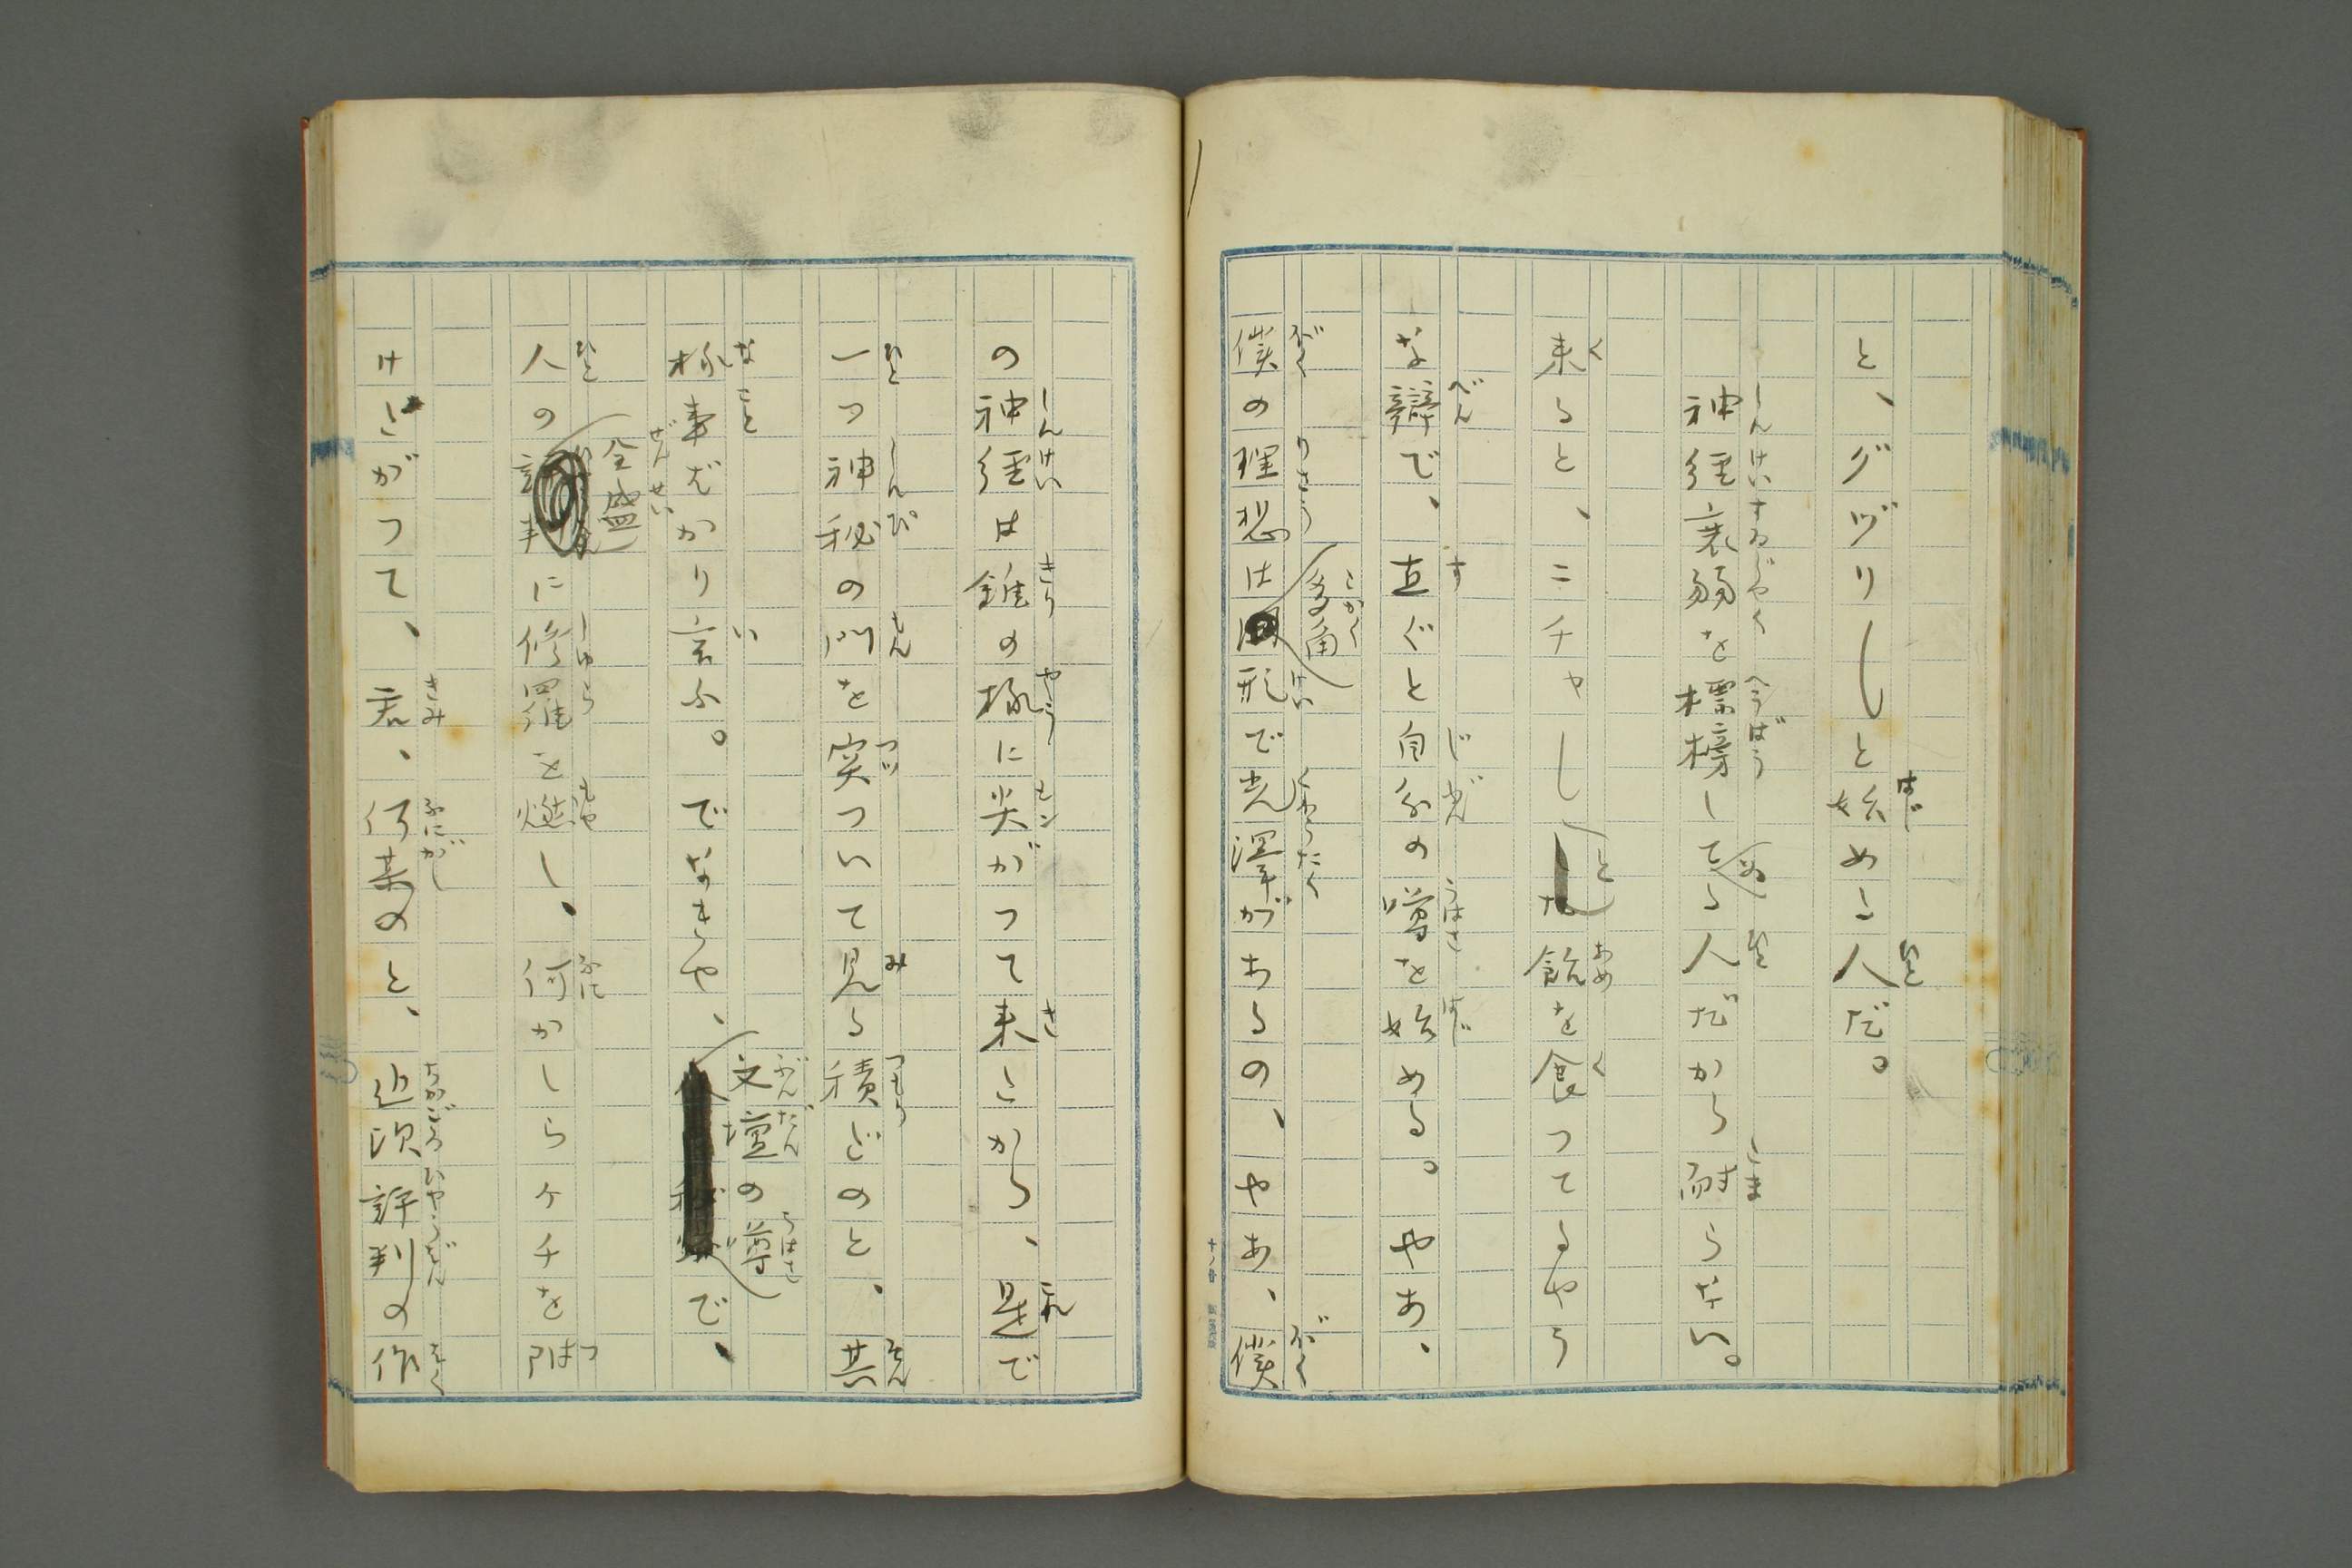 と、グヅリ〳〵と始めた人だ。
神経衰弱を標榜してゐる人だから耐らない。
来ると、ニチャ〳〵と飴を食つてるやう
な辯で、直ぐと自分の噂を始める。やあ、
僕の理想は多角形で光澤があるの、やあ、僕
の神経は錐の様に尖がつて来たから、是で
一つ神秘の門を突ついて見る積だのと、其
様事ばかり言ふ。でなきや、文壇の噂で、
人の全盛に修羅を燃し、何かしらケチを附
けたがつて、君、何某のと、近頃評判の作